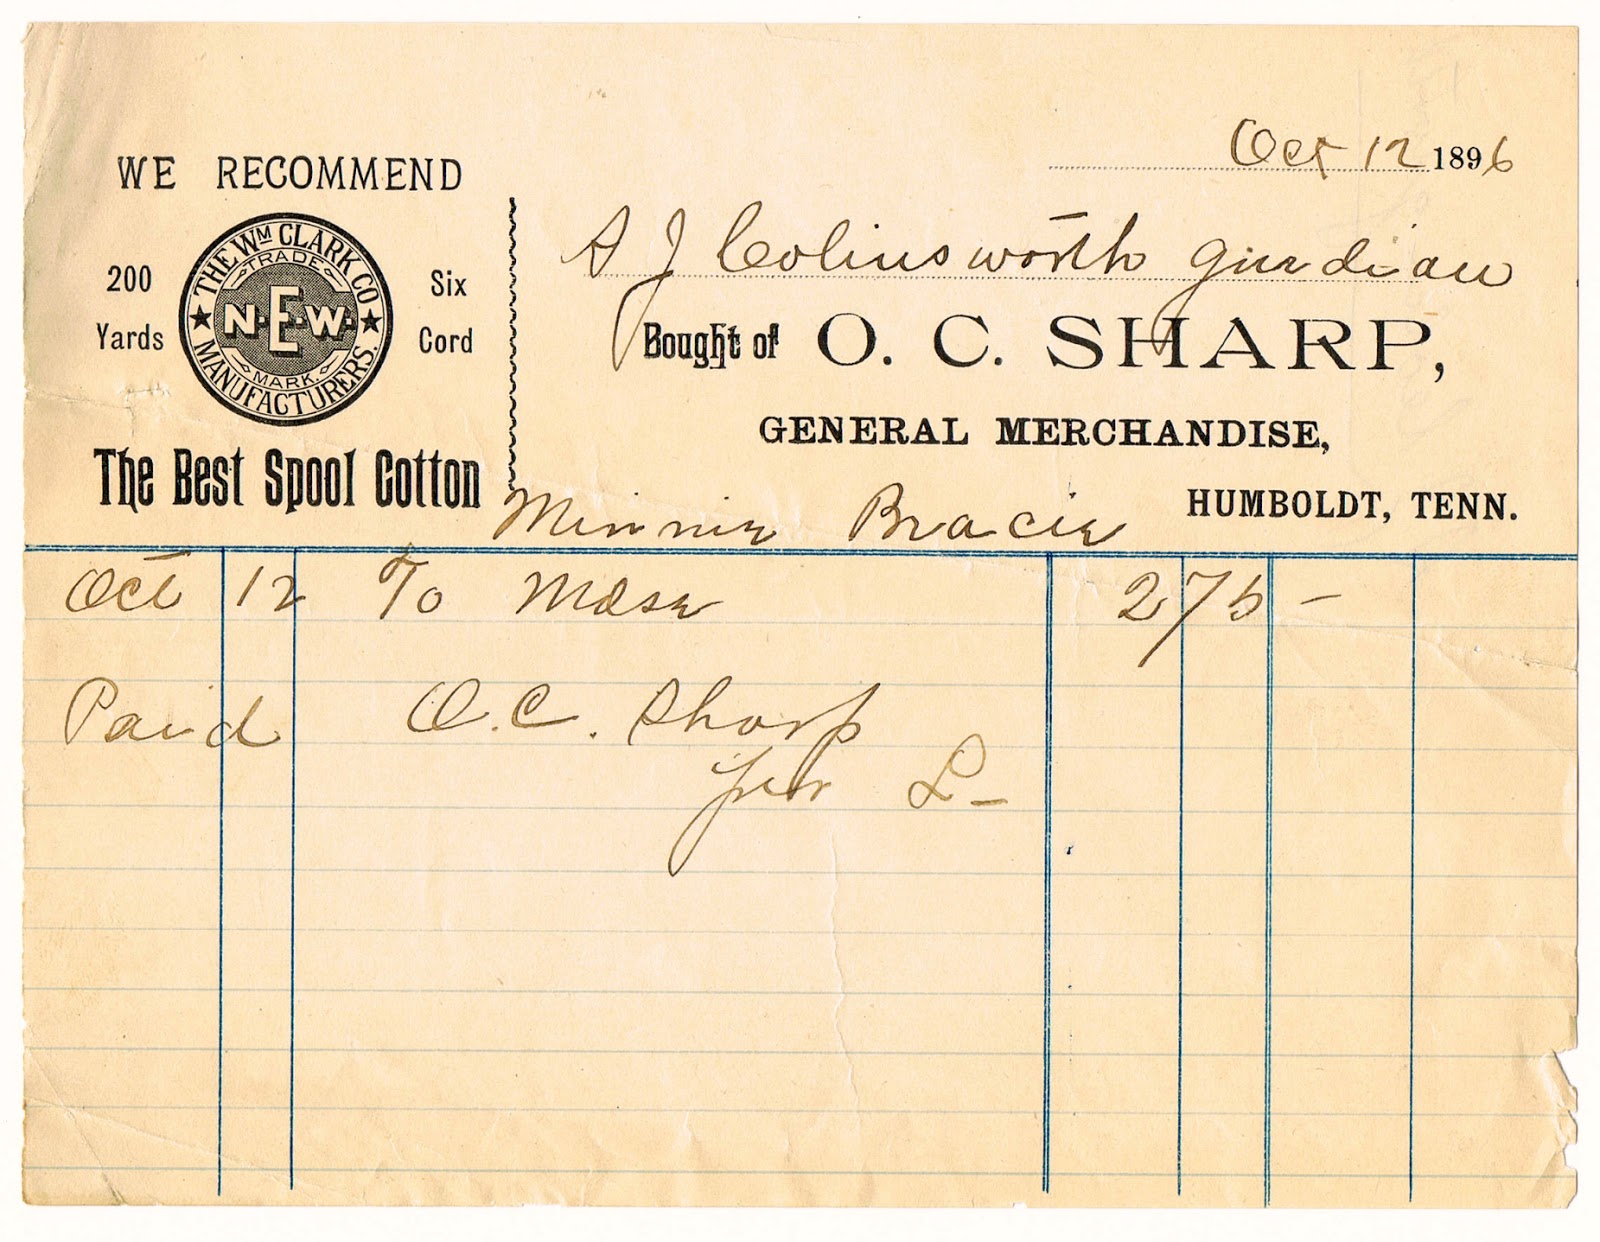 Oct 12 1896
WE RECOMMEND
THE WM CLARK CO
TRADE
200 Yards
N.E.W.
Six Cord
MARK.
MANUFACTURERS.
The Best Spool Cotton
S J Colinsworth gurdian
Bought of O. C. SHARP,
GENERAL MERCHANDISE,
HUMBOLDT, TENN.
Minnie Bracie
Oct 12 To Mdse 2 75 –
Paid O.C. Sharp
per L–